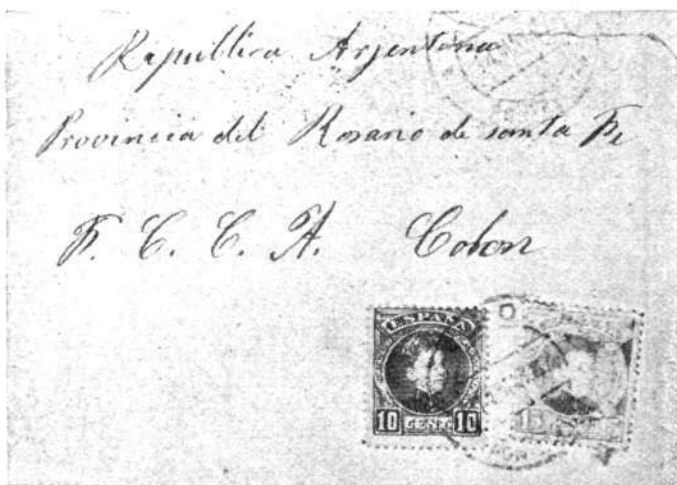 Republica Argentona
Provincia del Rosario de santa Fe
F. C. C. A. Colon
ESPAÑA
10 CENTS 10
15